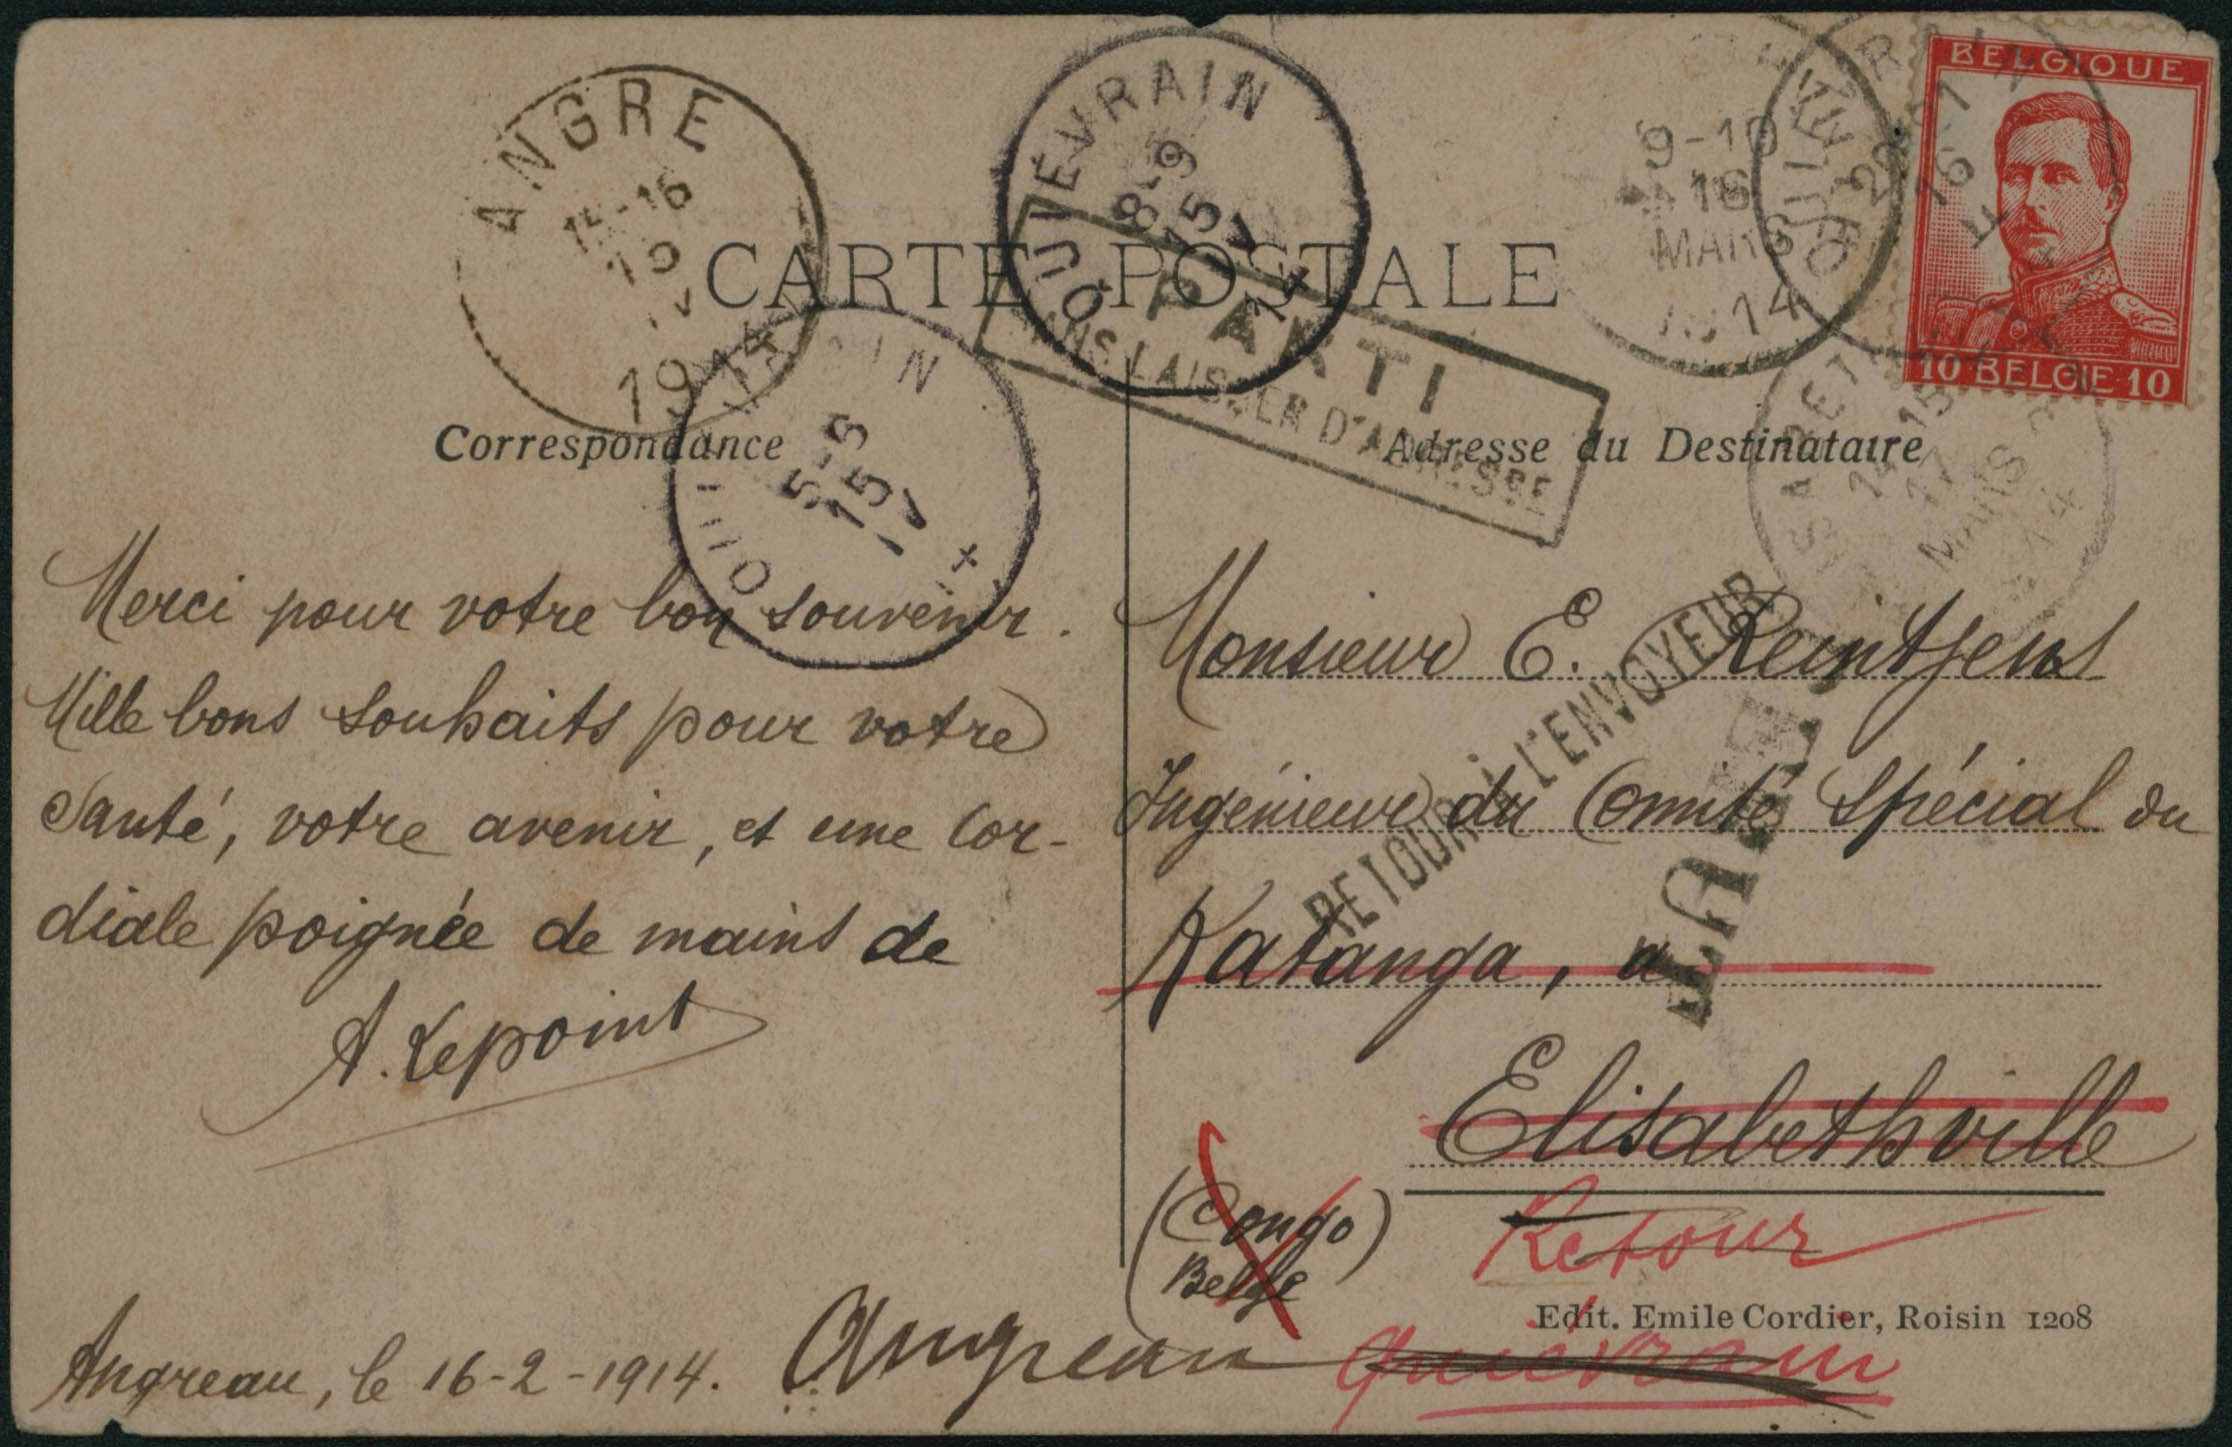 ANGRE
15-16
1914
QUIÉVRAIN
8-9
15
IV
14
9-10
16
MARS
1914
BELGIQUE
10 BELGIE 10
CARTE POSTALE
PARTI
SANS LAISSER D'ADRESSE
5-
15
IV
17
MARS
14
Correspondance
Adresse du Destinataire
Merci pour votre bon souvenir.
Mille bons souhaits pour votre
Santé, votre avenir, et une cor-
diale poignée de mains de
A. Lepoint
Angreau, le 16-2-1914.
Monsieur E. Reintjens
Ingénieur du Comité Spécial du
Katanga, à
Elisabethville
(Congo
Belge)
RETOUR À L'ENVOYEUR
Retour
Edit. Emile Cordier, Roisin 1208
Angreau
Quiévrain